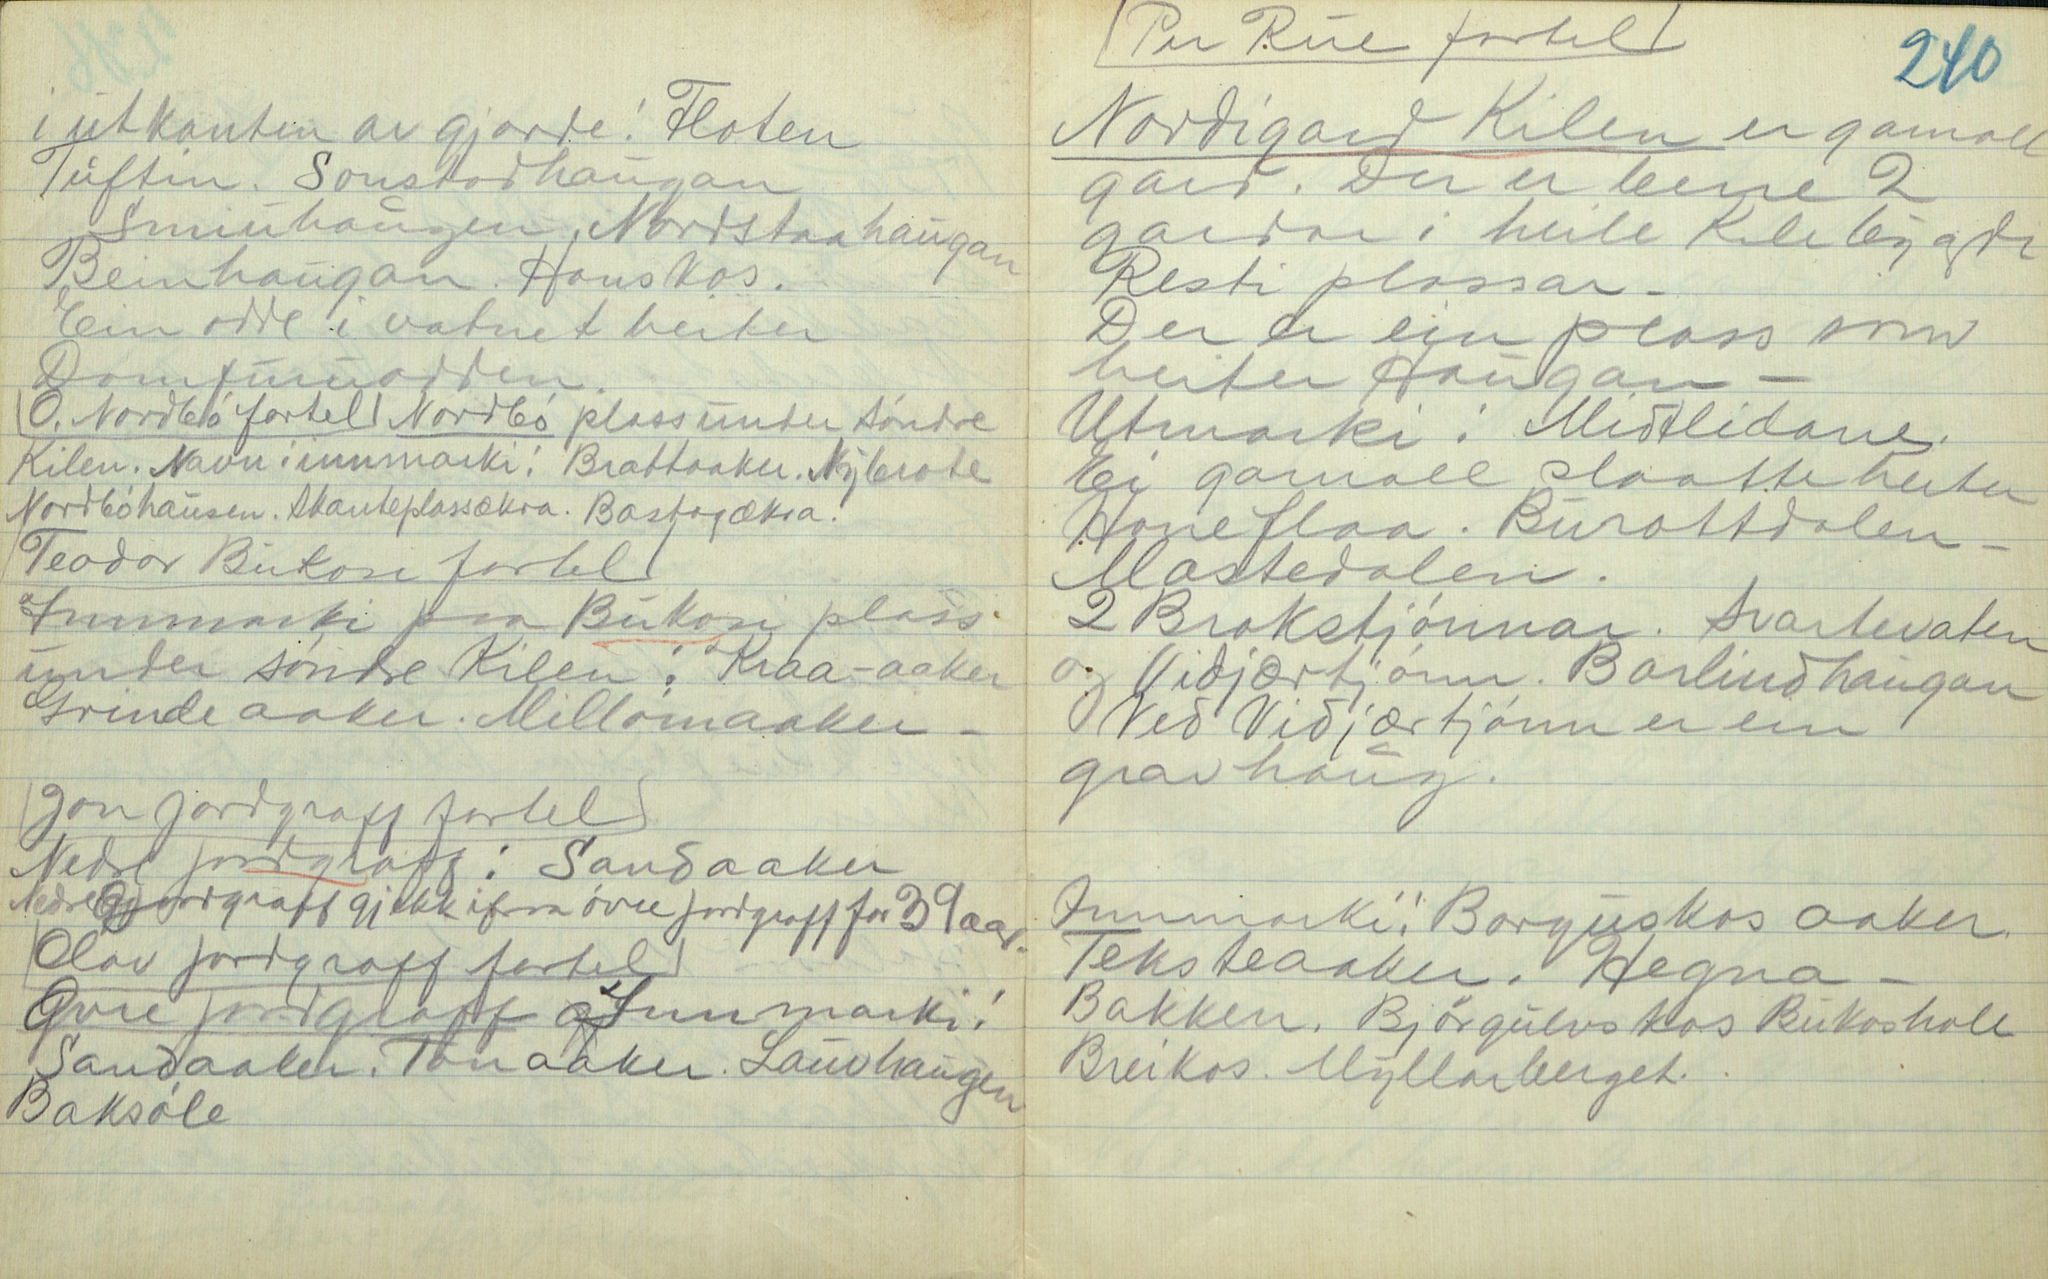 i utkanten av gjorde: Floten
Tuftin. Sonstadhaugan
Smiuhaugen. Nordstaahaugan
Beinhaugan. Hauskos.
Ein odde i vatnet heiter
Domfuruodden.
O. Nordbó fortel Nordbó plass under söndre
Kilen. Navn i innmarki: Brattaaker. Nybrote
Nordbóhausen. Skauteplassækra. Bastogækra.
Teodor Bukasi fortel
Innmarki paa Bukasi plass
under söndre Kilen: Kraa-aaker
Grindeaaker. Millomaaker -
Jon Jordgraff fortel
Nedre Jordgraff: Sandaaker
Nedre Jordgraff gjekk ifraa óvre Jordgraff for 39 aar.
Olav Jordgraff fortel
Óvre Jordgraff Innmarki:
Sandaaker. Tonaaker. Lauvhaugen
Baksóle
Per Rue fortel
240
Nordigard Kilen er gamall
gard. Der er berre 2
gardar i heile Kilebygdi
Resti plassar -
Der er ein plass som
heiter Haugan -
Utmarki: Midtlidane.
Ei gamall slaatte heiter
Haneflaa. Burottdalen -
Mastedalen.
2 Brokstjónnar. Svartevaten
og Vidjærtjónn. Barlindhaugan
Ved Vidjærtjónn er ein
gravhaug.
Innmarki: Borguskos aaker.
Teksteaaker. Hegna -
Bakken. Björgulvskos Bukoshall
Breikos. Myllarberget.